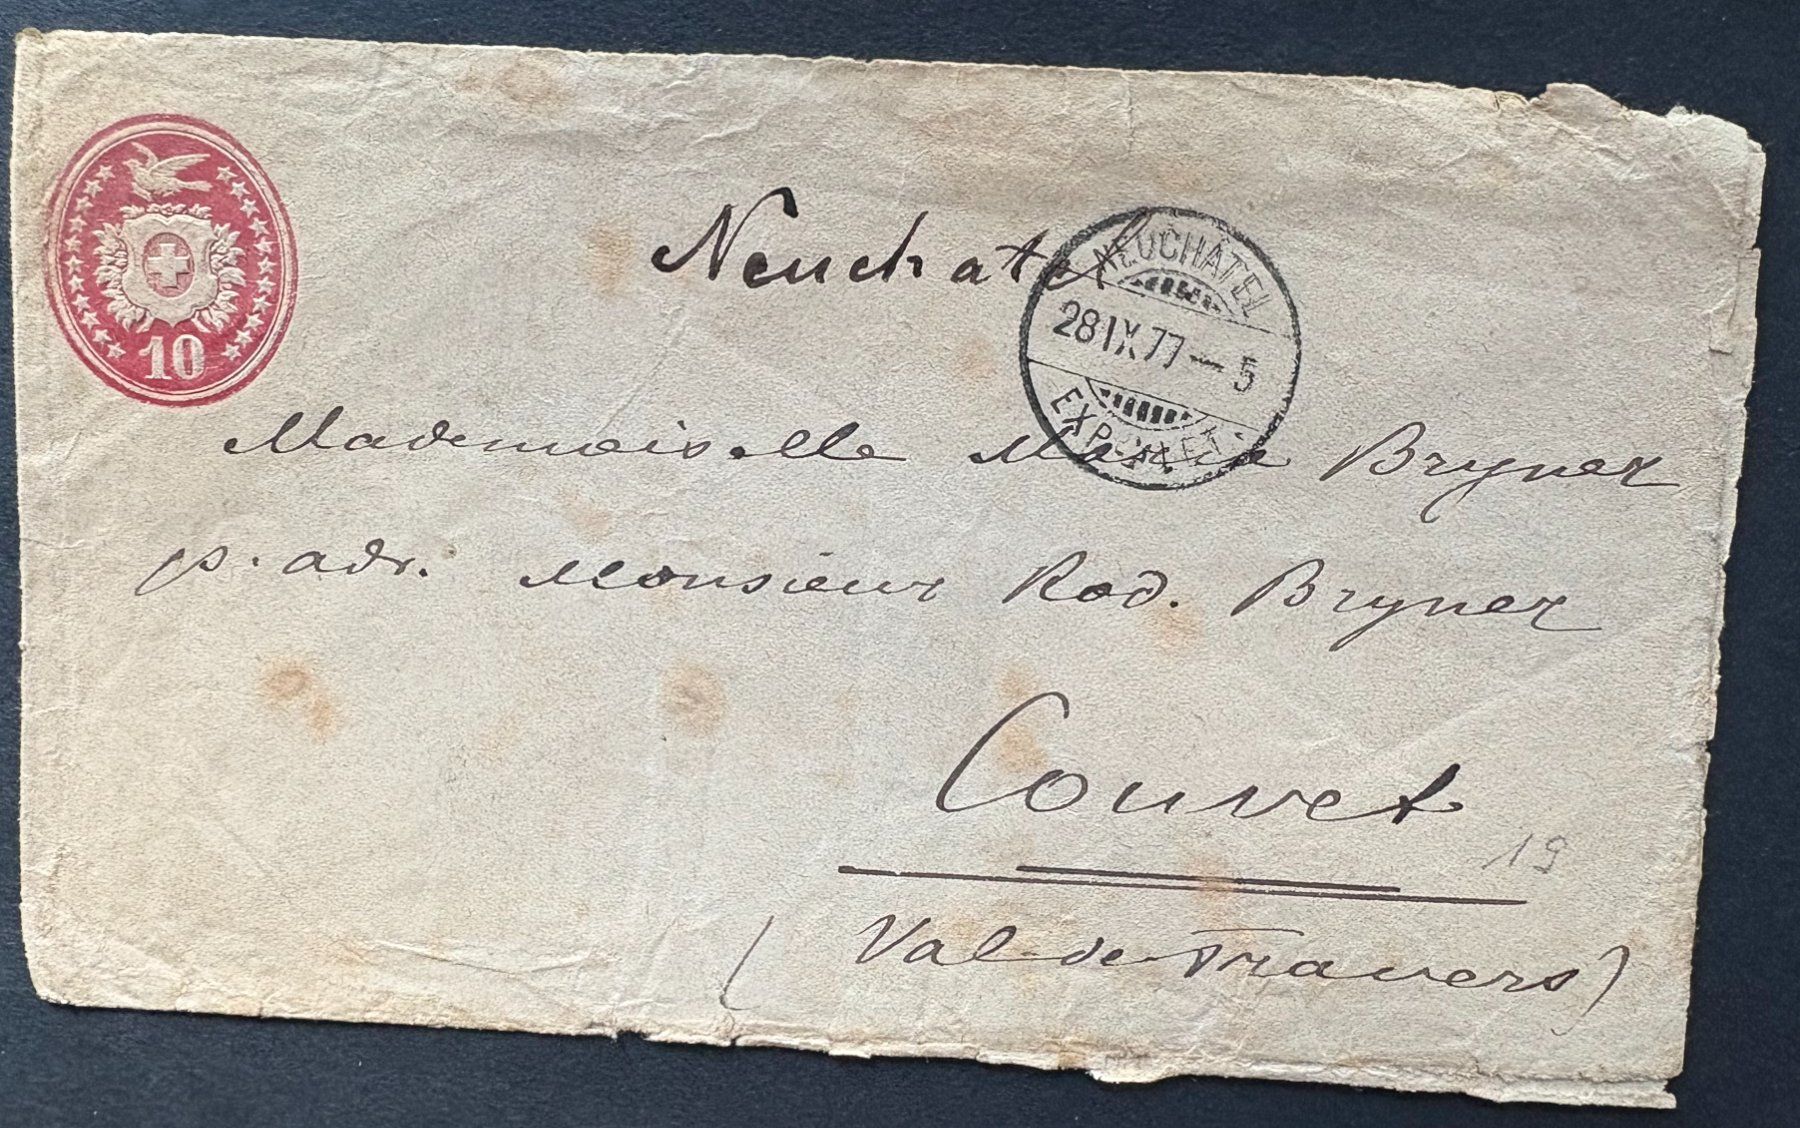 10
Neuchatel
NEUCHÂTEL
28 IX 77 — 5
EXP. LET.
Mademoiselle Marie Bryner
p. adr. Monsieur Rod. Bryner
Couvet
19
(Val-de-Travers)